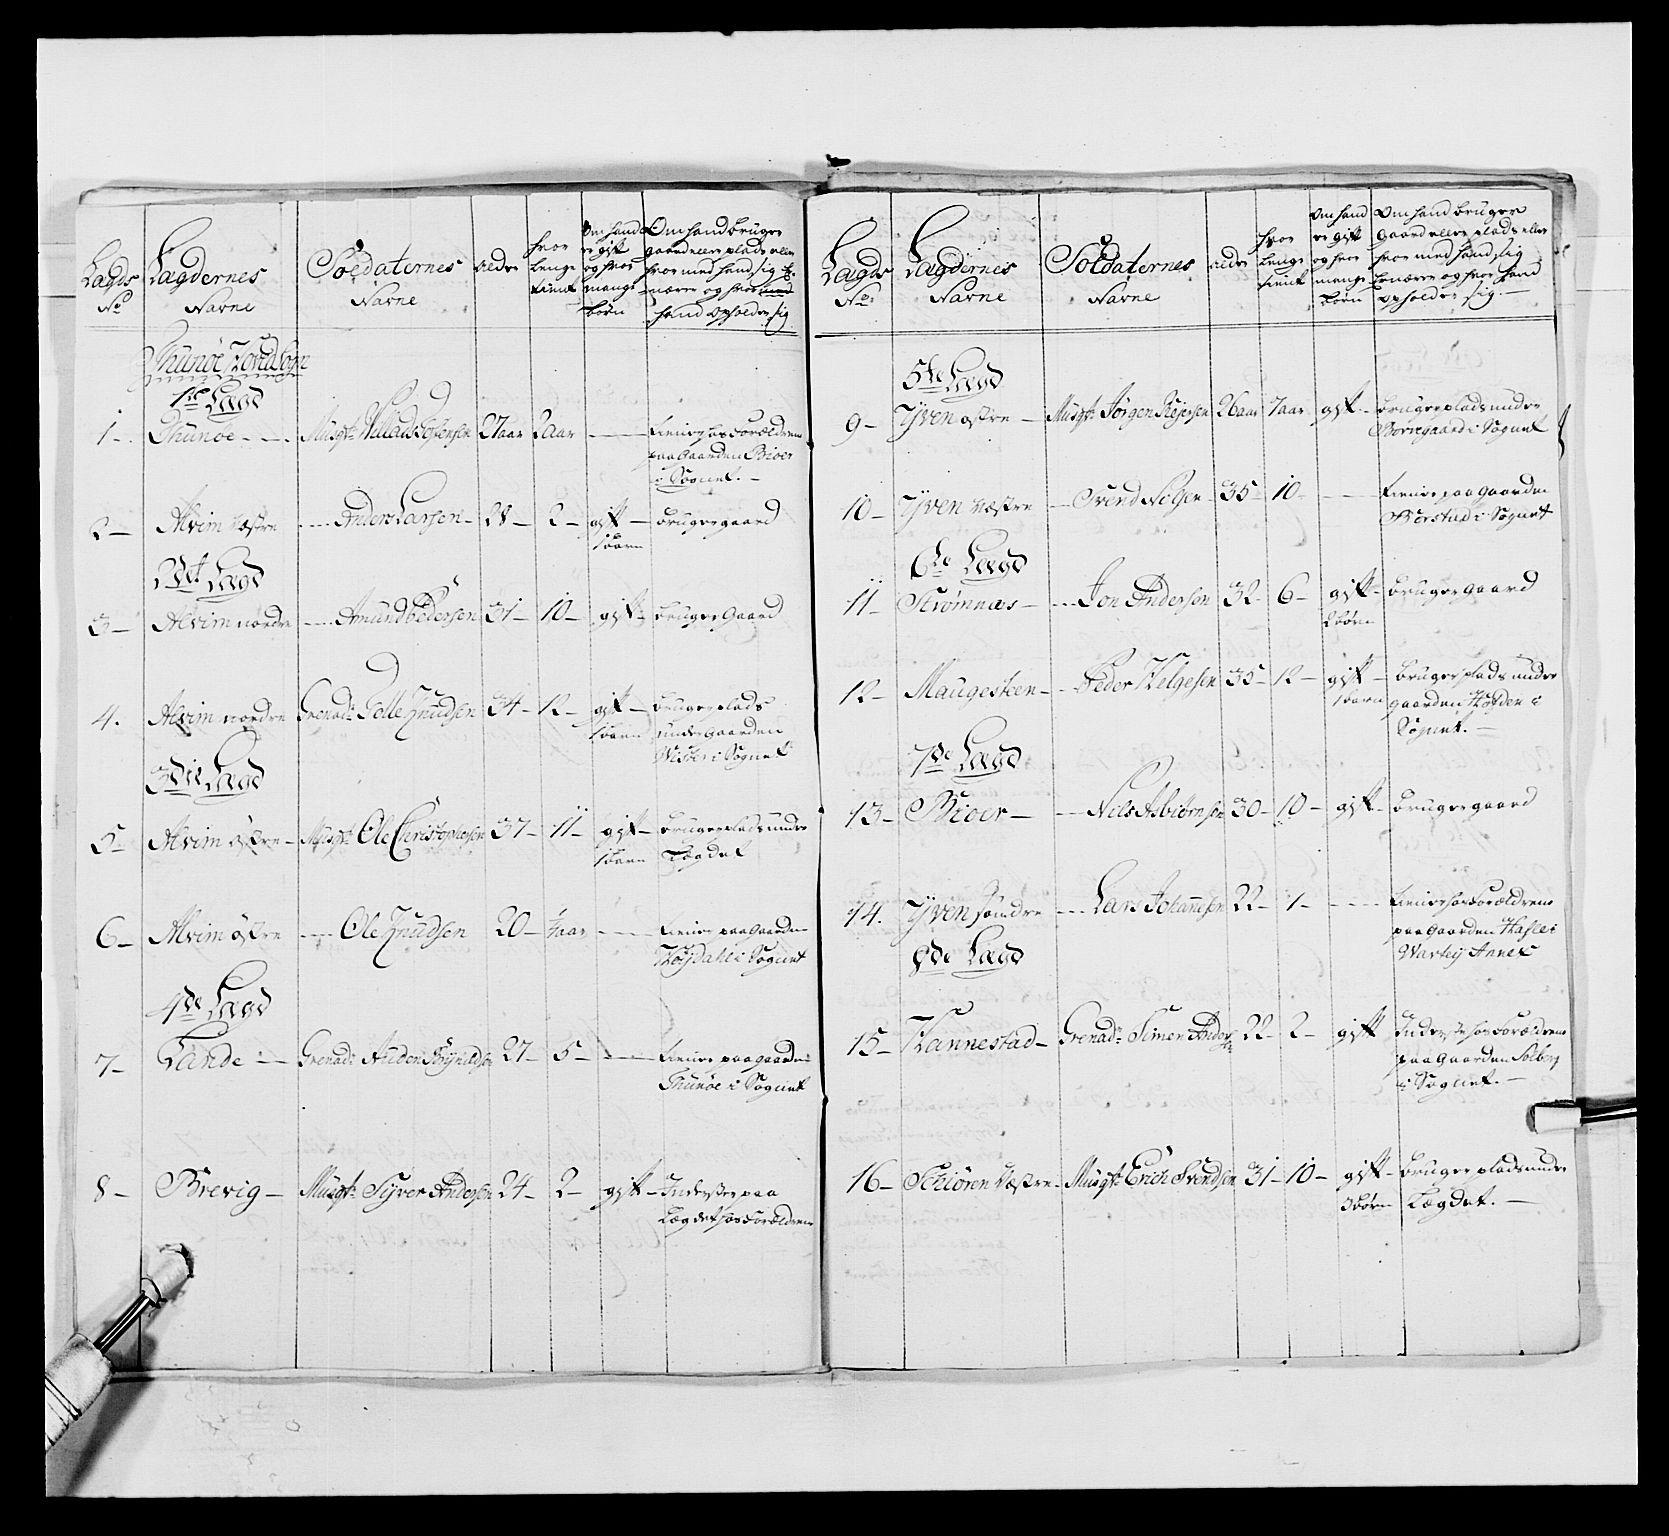 Lægds No
Lægdernes Navne
Soldaternes Navne
alder
hvor lenge tient
Om hand er gift og hvor mange børn
Om hand bruger gaard eller plads eller hvor med hand sig ernærer og hvor hand opholder sig
Thunøe Hovid Sogn
1te Lægd
1 - Thunøe - Musqt: Villads Olsen 27 aar 2 aar - tiener hos Forældrene
paa Gaarden Bioer
i Sognet. -
2 - Alvim Væstre - Anders Larsen - 28 - 2 - gift - bruger gaard
1 barn
2det Lægd
3 - Alvim nordre - Amund Pedersen 31 - 10 - gift - bruger Gaard
4. Alvim nordre Grenadr: Tolle Knudsen 34 - 12 - gift - bruger plads
1 barn under Gaarden
i Sognet
3die Lægd
5 - Alvim østre - Musqt: Ole Christophersen 37 - 11 - gift - bruger plads under
1 barn Lægdet
6 - Alvim østre - Ole Knudsen 20 - 1/2 aar - tiener paa Gaarden
i Sognet
4de Lægd
7 - Lande - Grenadr: Auden Brynildsen 27 - 5 - tiener paa gaarden
Thunøe i Sognet
8 - Brevig - Musqt: Syver Andersen 24 - 2 - gift - Inderster paa
Lægdet hos Forældrene
Lægds No:
Lægdernes Navne
Soldaternes Navne
alder
hvor lenge tient
Om hand er gift og hvor mange børn
Om hand bruger Gaard eller plads eller hvor med hand sig ernærer og hvor hand opholder sig. -
5te Lægd
9 - Yven østre - Musqt: Jörgen Rejersen 26 aar 7 aar gift - bruger plads under
i Sognet
10 - Yven Væstre - Svend Nilsen 35 - 10 - tiener paa Gaarden
Borstad i Sognet
6te Lægd
11 - Strømnæs - Jon Andersen 32 - 6 - gift - bruger gaard
2 børn
12 - Maugesteen - Peder Helgesen 35 - 12 - gift - bruger plads under
1 barn gaarden i
Sognet. -
7de Lægd
13 - Bioer - Nils Asbiörnsen 30 - 10 - gift - bruger gaard
14. Yven Søndre - Lars Johannesen 22 - 1 - tiener hos Forældrene
paa Gaarden Hasle i
Warteig Annex
8de Lægd
15 - Hannestad - Grenadr: Simen Anders: 22 - 2 - gift Inderste hos Forældrene
paa Gaarden Solberg
i Sognet. -
16 - Schiören Væstre - Musqt: Erich Svendsen 31 - 10 - gift - bruger plads under
3 børn Lægdet. -